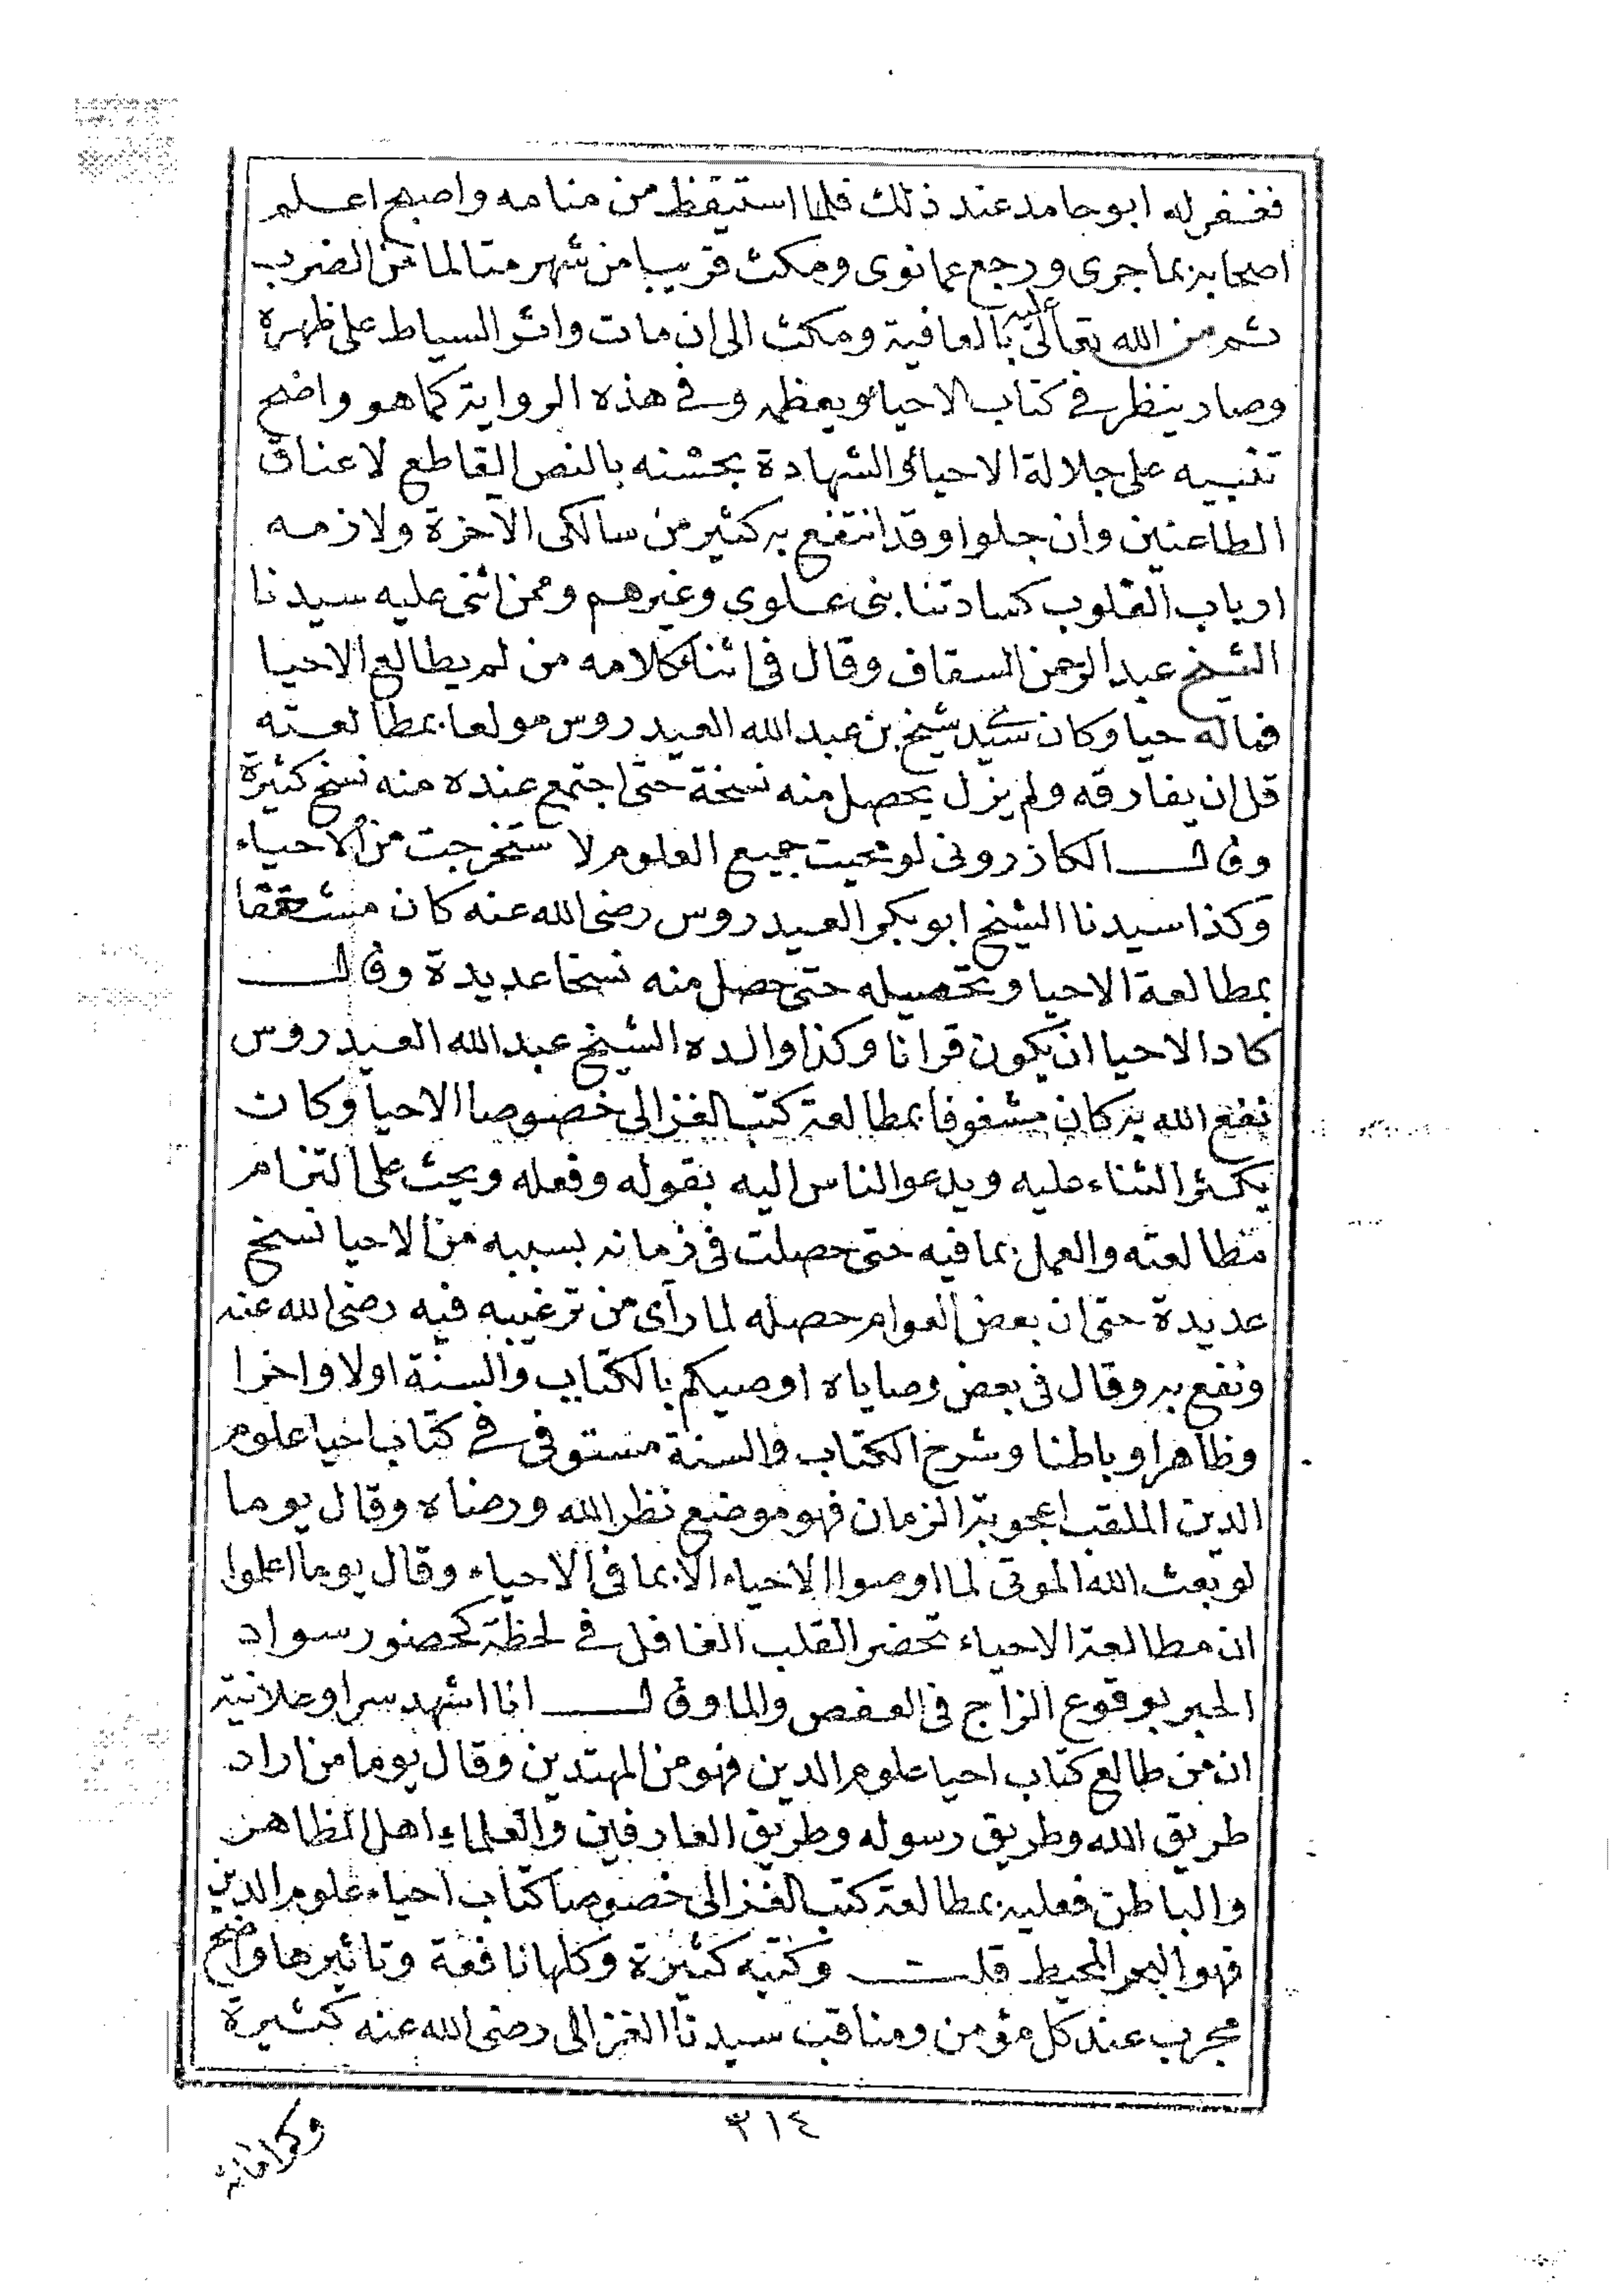 فغفر له ابو حامد عند ذلك فلما استيقظ من منامه واصبح اعلم
اصحابه بما جرى ورجع عما نوى ومكث قريبا من شهر متالما من الضرب
ثم من الله تعالى عليه بالعافية ومكث الى ان مات واثر السياط على ظهره
وصار ينظر في كتاب الاحياء ويعظمه وفي هذه الرواية كما هو واضح
تنبيه على جلالة الاحياء والشهادة بحسنه بالنص القاطع لاعناق
الطاعنين وان جلوا وقد انتفع به كثير من سالكى الآخرة ولازمه
ارباب القلوب كسادتنا بنى علوى وغيرهم وممن اثنى عليه سيدنا
الشيخ عبد الرحمن السقاف وقال في اثناء كلامه من لم يطالع الاحيا
فماله حيا وكان سيد شيخ بن عبد الله العيدروس مولعا بمطالعته
قل ان يفارقه ولم يزل يحصل منه نسخة حتى اجتمع عنده منه نسخ كثيرة
وقال الكازرونى لو محيت جميع العلوم لاستخرجت من الاحياء
وكذا سيدنا الشيخ ابو بكر العيدروس رضى الله عنه كان
بمطالعة الاحيا وتحصيله حتى حصل منه نسخا عديدة وقال
كاد الاحيا ان يكون قرانا وكذا والده الشيخ عبد الله العيدروس
نفع الله به كان مشغوفا بمطالعة كتب الغزالى خصوصا الاحيا وكان
يكثر الثناء عليه ويدعو الناس اليه بقوله وفعله ويحث على التزام
مطالعته والعمل بما فيه حتى حصلت فى زمانه بسببه من الاحيا نسخ
عديدة حتى ان بعض العوام حصله لما رآى من ترغيبه فيه رضى الله عنه
ونفع به وقال فى بعض وصاياه اوصيكم بالكتاب والسنة اولا واخرا
وظاهرا وباطنا وشرح الكتاب والسنة مستوفى في كتاب احيا علوم
الدين الملقب اعجوبة الزمان فهو موضع نظر الله ورضاه وقال يوما
لو بعث الله الموتى لما اوصوا الاحياء الا بما فى الاحياء وقال يوما اعلموا
ان مطالعة الاحياء تحضر القلب الغافل في لحظة كحضور سواد
الحبر بوقوع الزاج فى العفص والما وقال انا اشهد سرا وعلانية
ان من طالع كتاب احيا علوم الدين فهو من المهتدين وقال يوما من اراد
طريق الله وطريق رسوله وطريق العارفين والعلماء اهل الظاهر
والباطن فعليه بمطالعة كتب الغزالى خصوصا كتاب احياء علوم الدين
فهو البحر المحيط قلت وكتبه كثيرة وكلها نافعة وتاثيرها واضح
مجرب عند كل مؤمن ومناقب سيدنا الغزالى رضى الله عنه كثيرة
٣١٤
وكراماته